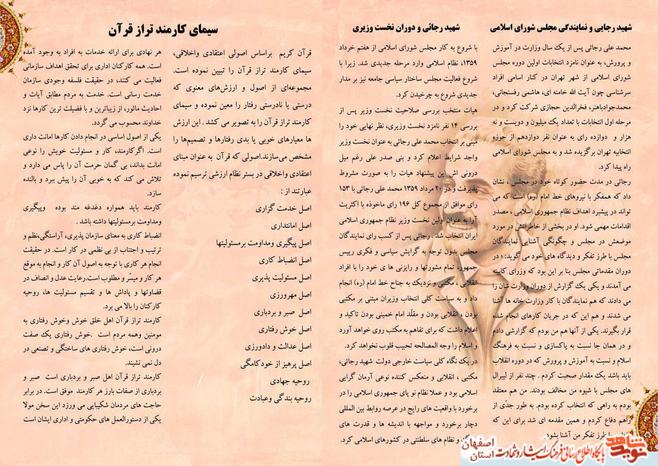 شهید رجایی و نمایندگی مجلس شورای اسلامی
محمد علی رجائی پس از یک سال وزارت در آموزش
و پرورش، به عنوان نامزد انتخابات اولین دوره مجلس
شورای اسلامی از شهر تهران در کنار اسامی افراد
سرشناسی چون آیت الله خامنه ای، هاشمی رفسنجانی،
محمدجوادباهنر، فخرالدین حجازی شرکت کرد و در
مرحله اول انتخابات با تعداد یک میلیون و دویست و نه
هزار و دوازده رای به عنوان نفر دوازدهم از حوزه
انتخابیه تهران برگزیده شد و به مجلس شورای اسلامی
راه پیدا کرد.
رجائی در مدت حضور کوتاه خود در مجلس، نشان
داد که همفکر با نیروهای خط امام (ره) است که می
تواند در پیشبرد اهداف نظام جمهوری اسلامی، مصدر
اقدامات مهمی شود. او در بخشی از خاطراتش در مورد
موضعش در مجلس و چگونگی آشنایی نمایندگان
مجلس با طرز تفکر و دیدگاه های خود می گوید: «در
دوران مقدماتی مجلس بنا بر این بود که وزرای کابینه
می آمدند و یکی یک گزارش از دوران وزارت شان را
می دادند که هم نمایندگان با کار وزارت خانه ها آشنا
می شدند و هم این که در جریان کارهای انجام شده
قرار بگیرند. یکی از آنها هم من بودم که گزارشی دادم
و در همان جا نسبت به پاکسازی و نسبت به فرهنگ
اسلام و نسبت به آموزش و پرورش که در دوره انقلاب
باید باشد یک مقدار صحبت کردم. چند نفر از لیبرال
های مجلس با شیوه من مخالف بودند. من هم معتقد
بودم به راهی که انتخاب کرده بودم. به طور جدّی از
راهم دفاع کردم و همین مقدمه ای شد برای این که
با طرز تفکر من آشنا بشود.
شهید رجائی و دوران نخست وزیری
با شروع به کار مجلس شورای اسلامی از هفتم خرداد
۱۳۵۹، نظام اسلامی وارد مرحله جدیدی شد. زیرا با
شروع فعالیت مجلس ساختار سیاسی جامعه نیز بر مدار
جدیدی شروع به چرخیدن کرد.
هیات منتخب بررسی صلاحیت نخست وزیر پس از
بررسی ۱۴ نفر نامزد نخست وزیری، نظر نهایی خود را
مبنی بر انتخاب محمد علی رجائی به عنوان نخست وزیر
واجد شرایط اعلام کرد و بنی صدر علی رغم میل
درونی اش این پیشنهاد هیات را به صورت مشروط
پذیرفت و در ۲۰ مرداد ۱۳۵۹ محمد علی رجائی با ۱۵۳
رای موافق از مجموع کل ۱۹۶ رای ماخوذه با اکثریت
آرا به عنوان اولین نخست وزیر نظام جمهوری اسلامی
ایران انتخاب شد. رجائی پس از کسب رای نمایندگان
مجلس عنوان توجه به گرایش سیاسی و فکری رییس
جمهور، تمام مشورتها و رایزنی های خود را با افراد
انقلابی، مکتبی و نزدیک به جناح خط امام (ره) انجام
داد و به سیاست کلی انتخاب وزیران مبتنی بر مکتبی
بودن، انقلابی بودن و مقلّد امام خمینی بودن تاکید و
اظهار داشت که برای تفاهم به مکتب روی خواهد آورد
و اسلام را وجه المصالحه تحبیب قلوب نخواهد کرد.
در یک نگاه کلی سیاست خارجی دولت شهید رجائی،
مکتبی، انقلابی و منعکس کننده نوعی آرمان گرایی
اسلامی بود و عملا نظام نو پای جمهوری اسلامی را در
برخورد با واقعیت های رایج در عرصه روابط بین المللی
دچار برخورد و مواجهه با اندیشه ها و قدرت های
و نظام های سلطنتی در کشورهای اسلامی کرد.
سیمای کارمند تراز قرآن
قرآن کریم براساس اصولی اعتقادی واخلاقی،
سیمای کارمند تراز قرآن را تبیین نموده است.
مجموعه‌ای از اصول و ارزش‌های معنوی که
درستی یا نادرستی رفتار را معین نموده و سیمای
کارمند تراز قرآن را به تصویر می کشد. این ارزش
ها معیارهای خوبی یا بدی رفتارها و تصمیم‌ها را
مشخص می‌سازند.اصولی که قرآن به عنوان مبنای
اعتقادی واخلاقی در بستر نظام ارزشی ترسیم نموده
عبارتند از:
اصل خدمت گزاری
اصل امانتداری
اصل پیگیری ومداومت برمسئولیتها
اصل انضباط کاری
اصل مسئولیت پذیری
اصل مهرورزی
اصل صبر و بردباری
اصل خوش رفتاری
اصل عدالت و دادورزی
اصل پرهیز از خودکامگی
روحیه جهادی
روحیه بندگی وعبادت
هر نهادی برای ارائه خدمات به افراد به وجود آمده
است. همه کارکنان اداری برای تحقق اهداف سازمانی
فعالیت می کنند، در حقیقت فلسفه وجودی سازمان
خدمت رسانی است. خدمت به مردم مطابق آیات و
احادیث ماثور، از زیباترین و با فضیلت ترین کارها نزد
خداوند محسوب می گردد.
یکی از اصول اساسی در انجام دادن کارها امانت داری
است. اگرکارمند، کار و مسئولیت خویش را نوعی
امانت بداند، بی گمان حرمت آن را پاس می دارد و
تلاش می کند که به خوبی آن را پیش ببرد و بالنده
سازد.
کارمند باید همواره دغدغه مند بوده وپیگیری
ومداومت برمسئولیتها داشته باشد.
انضباط کاری به معنای سازمان پذیری، آراستگی،نظم و
ترتیب و اجتناب از بی نظمی در کار است. در حقیقت
انجام هر کاری با توجه به اصول آن کار و انجام به موقع
هر کار و میسّر و مطلوب است.رعایت عدل و انصاف در
قضاوتها و پاداش ها و تقسیم مسئولیت ها، روحیه
کارکنان را بالا می برد.
کارمند تراز قرآن اهل خلق خوش وخوش رفتاری به
مومنین وهمه مردم است. خوش رفتاری یک صفت
درونی است، خوش رفتاری های ساختگی و تصنعی در
دل نمی نشیند.
کارمند تراز قرآن اهل صبر و بردباری است صبر و
بردباری از صفات بارز هر کارمند موفق است. در برابر
حاجت های مردمان شکیبایی می ورزد این سخن مولا
یکی از دستورالعمل های حکومتی و اداری ایشان است
نوید شاهد
پایگاه اطلاع رسانی فرهنگ ایثار و شهادت
استان اصفهان